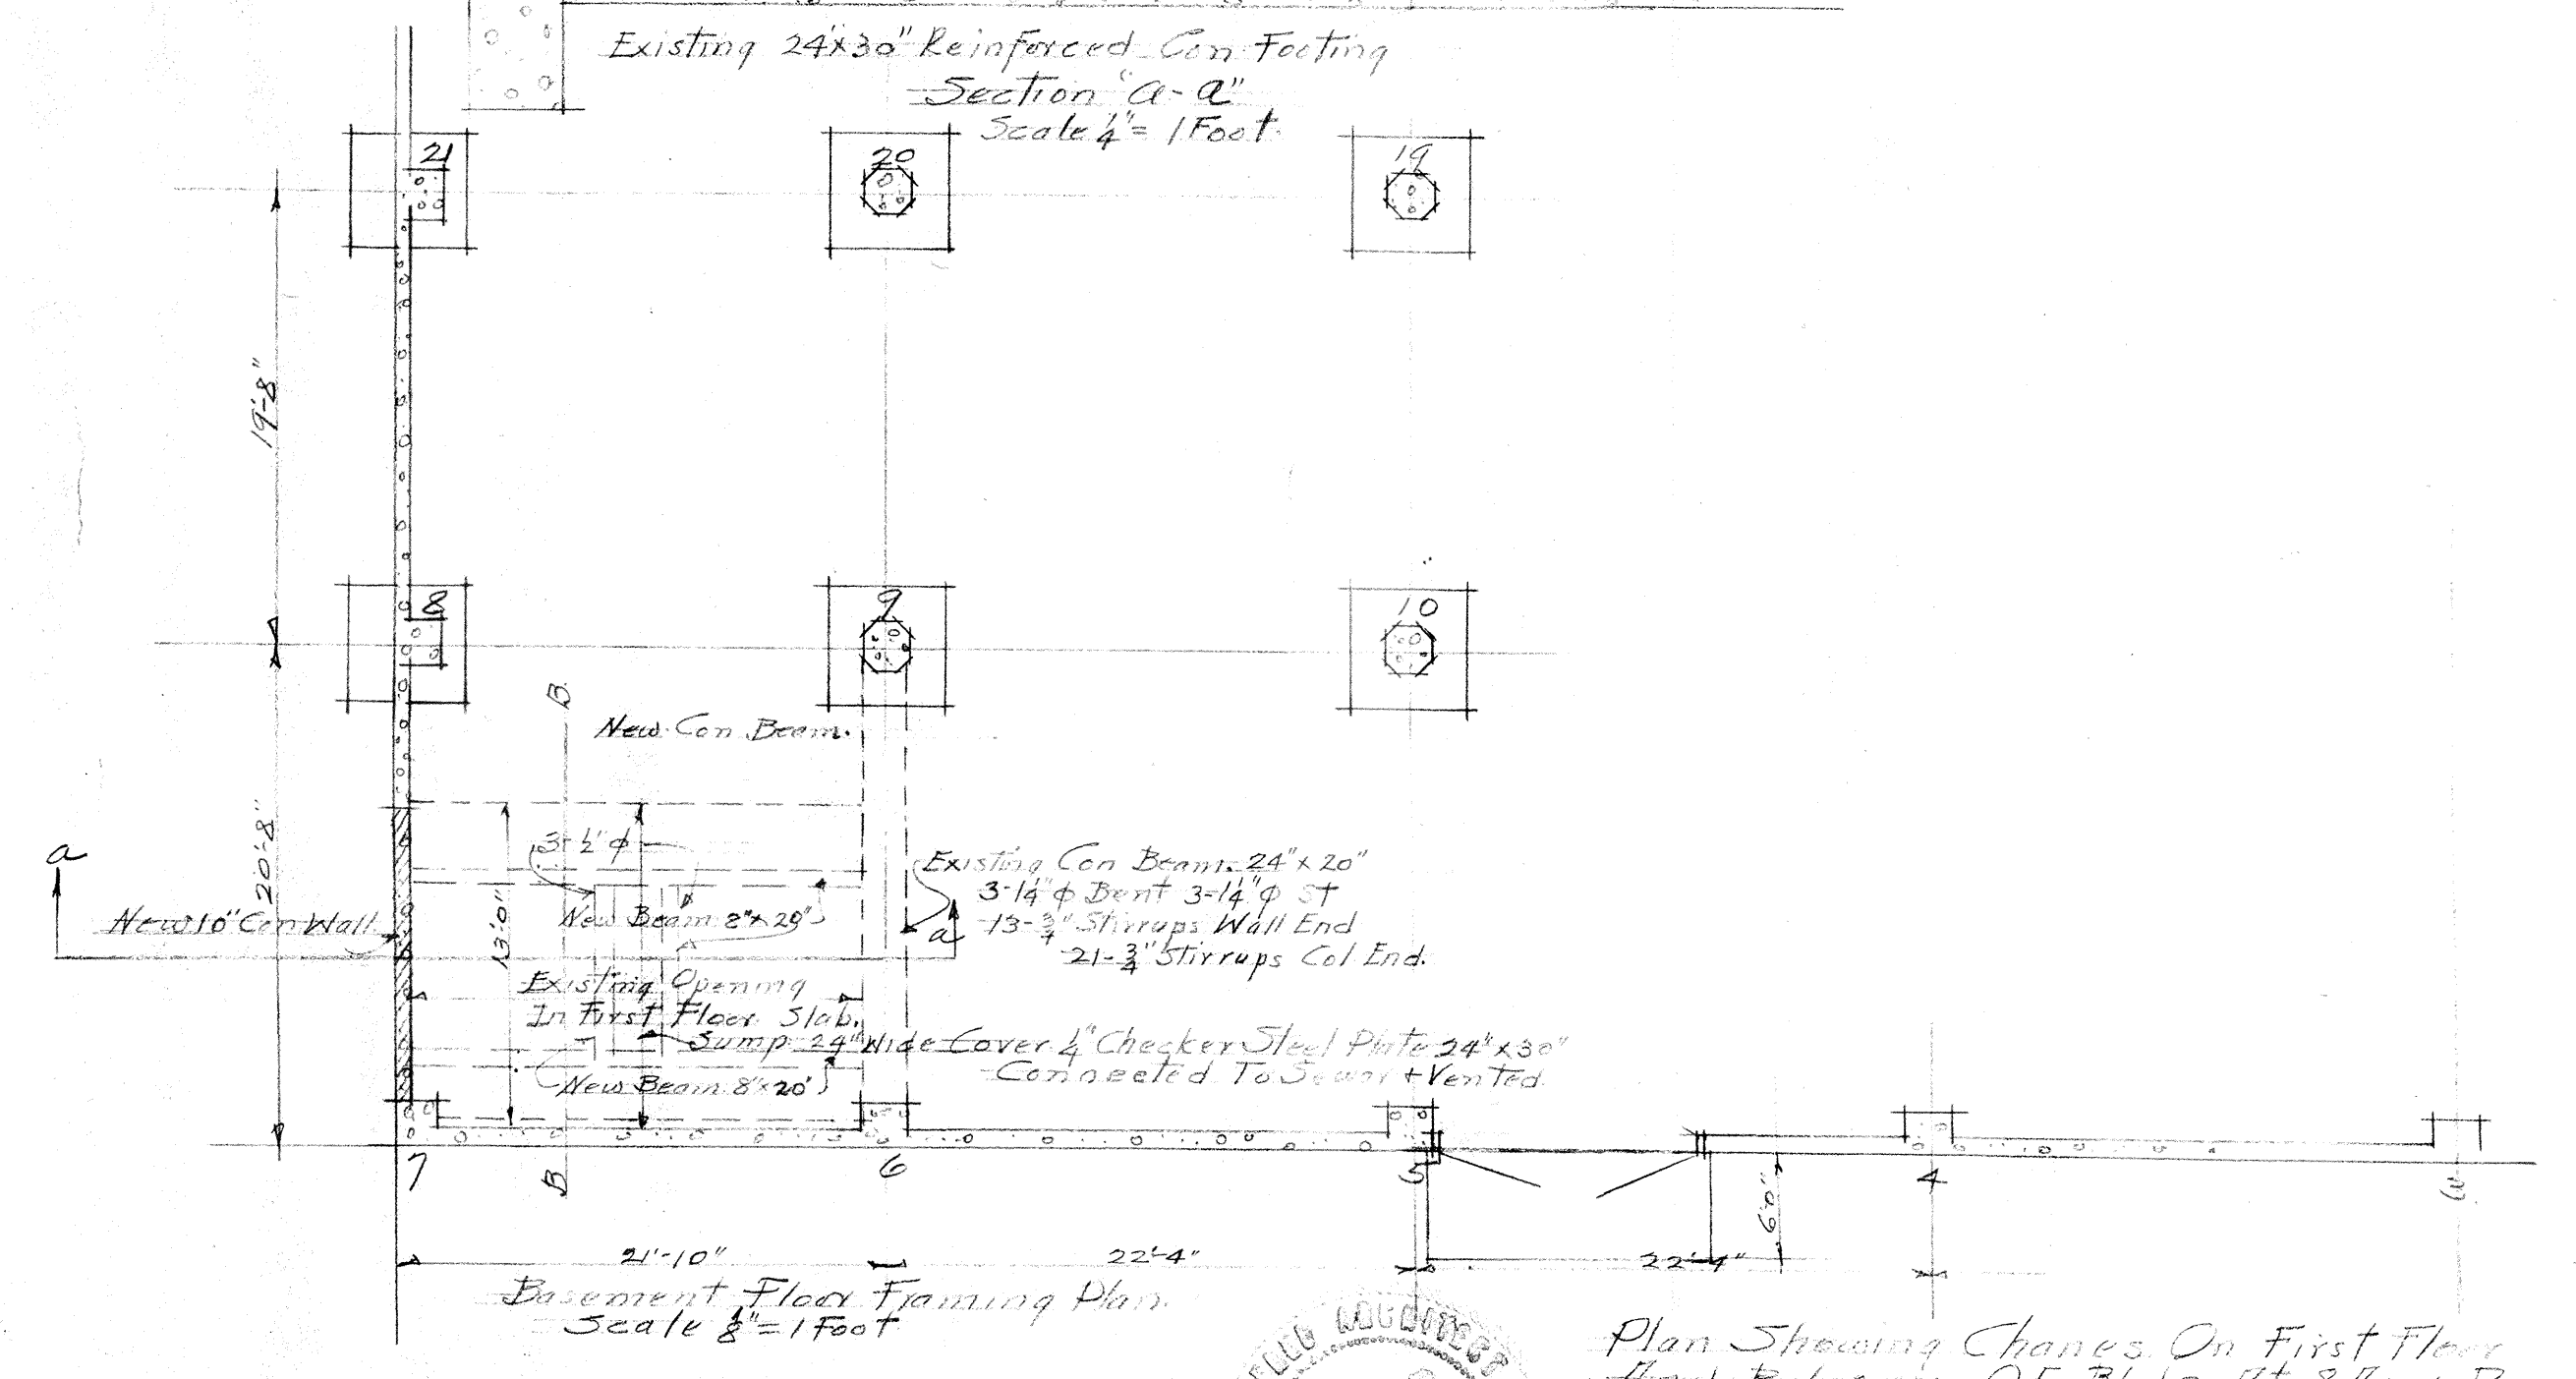 Existing 24"x30" Reinforced Con Footing
Section "a-a"
Scale 1/4" = 1 Foot.
21
20
19
19'-8"
8
9
10
B
New Con Beam.
3-1/2" φ
20'-8"
a
New 10" Con Wall
13'-0"
New Beam 8"x20"
Existing Con Beam. 24"x20"
3-1/4" φ Bent 3-1/4" φ St
13-3/4" Stirrups Wall End
a
21-3/4" Stirrups Col End.
Existing Opening
In First Floor Slab.
Sump 24" Wide Cover 1/4" Checker Steel Plate 24"x30"
Connected To Sewer + Vented
New Beam 8"x20"
7
B
6
5
4
3
6'0"
21'-10"
22'-4"
22'-4"
Basement Floor Framing Plan.
Scale 1/8" = 1 Foot
Plan Showing Chanes On First Floor